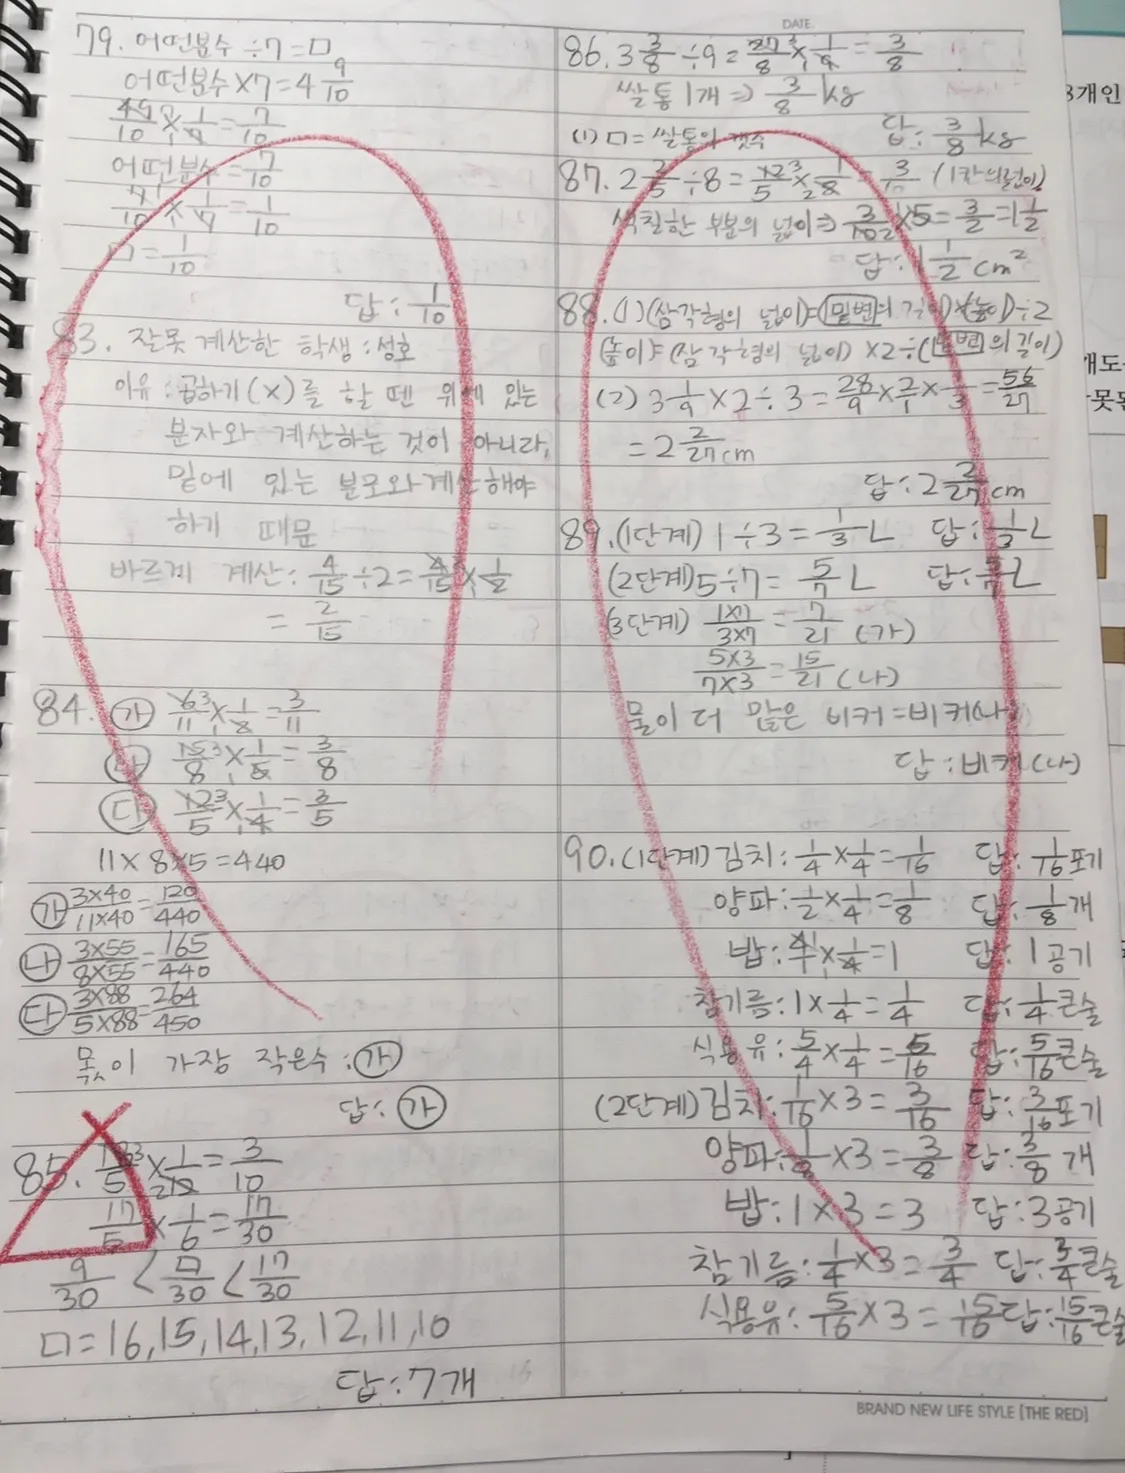 DATE
79. 어떤분수 ÷7=□
어떤분수×7=4 9/10
49/10 × 1/7 = 7/10
어떤분수=7/10
7/10 × 1/7 = 1/10
□=1/10
답: 1/10
83. 잘못 계산한 학생:성호
이유:곱하기(×)를 할 땐 위에 있는
분자와 계산하는 것이 아니라,
밑에 있는 분모와계산해야
하기 때문
바르게 계산: 4/15 ÷2= 4/15 × 1/2
= 2/15
84. ㉮ 6 3/11 × 1/8 = 3/11
㉯ 15 3/8 × 1/5 = 3/8
㉰ 12 3/5 × 1/4 = 3/5
11×8×5=440
㉮ 3×40/11×40 = 120/440
㉯ 3×55/8×55 = 165/440
㉰ 3×88/5×88 = 264/450
몫이 가장 작은수:㉮
답:㉮
85. 18 3/5 × 1/12 2 = 3/10
17/5 × 1/6 = 17/30
9/30 < □/30 < 17/30
□=16,15,14,13,12,11,10
답:7개
86. 3 3/8 ÷9= 27 3/8 × 1/9 = 3/8
쌀통 1개⇒ 3/8 kg
(1) □=쌀통의 갯수
답: 3/8 kg
87. 2 2/5 ÷8= 12 3/5 × 1/8 2 = 3/10 (1칸의넓이)
색칠한 부분의 넓이⇒ 3/10 2 × 5 1 = 3/2 = 1 1/2
답: 1 1/2 cm²
88.(1)(삼각형의 넓이)=(밑변의 길이)×(높이)÷2
(높이)=(삼각형의 넓이)×2÷(밑변의 길이)
(2) 3 1/9 ×2÷3= 28/9 × 2/1 × 1/3 = 56/27
= 2 2/27 cm
답: 2 2/27 cm
89.(1단계) 1÷3= 1/3 L 답: 1/3 L
(2단계)5÷7= 5/7 L 답: 5/7 L
(3단계) 1×7/3×7 = 7/21 (가)
5×3/7×3 = 15/21 (나)
물이 더 많은 비커=비커(나)
답:비커(나)
90.(1단계)김치: 1/4 × 1/4 = 1/16 답: 1/16 포기
양파: 1/2 × 1/4 = 1/8 답: 1/8 개
밥: 4 1/1 × 1/4 =1 답: 1공기
참기름:1× 1/4 = 1/4 답: 1/4 큰술
식용유: 5/4 × 1/4 = 5/16 답: 5/16 큰술
(2단계)김치: 1/16 ×3= 3/16 답: 3/16 포기
양파: 1/8 ×3= 3/8 답: 3/8 개
밥:1×3=3 답:3공기
참기름: 1/4 ×3= 3/4 답: 3/4 큰술
식용유: 5/16 ×3= 15/16 답: 15/16 큰술
BRAND NEW LIFE STYLE [THE RED]
3개인
개도